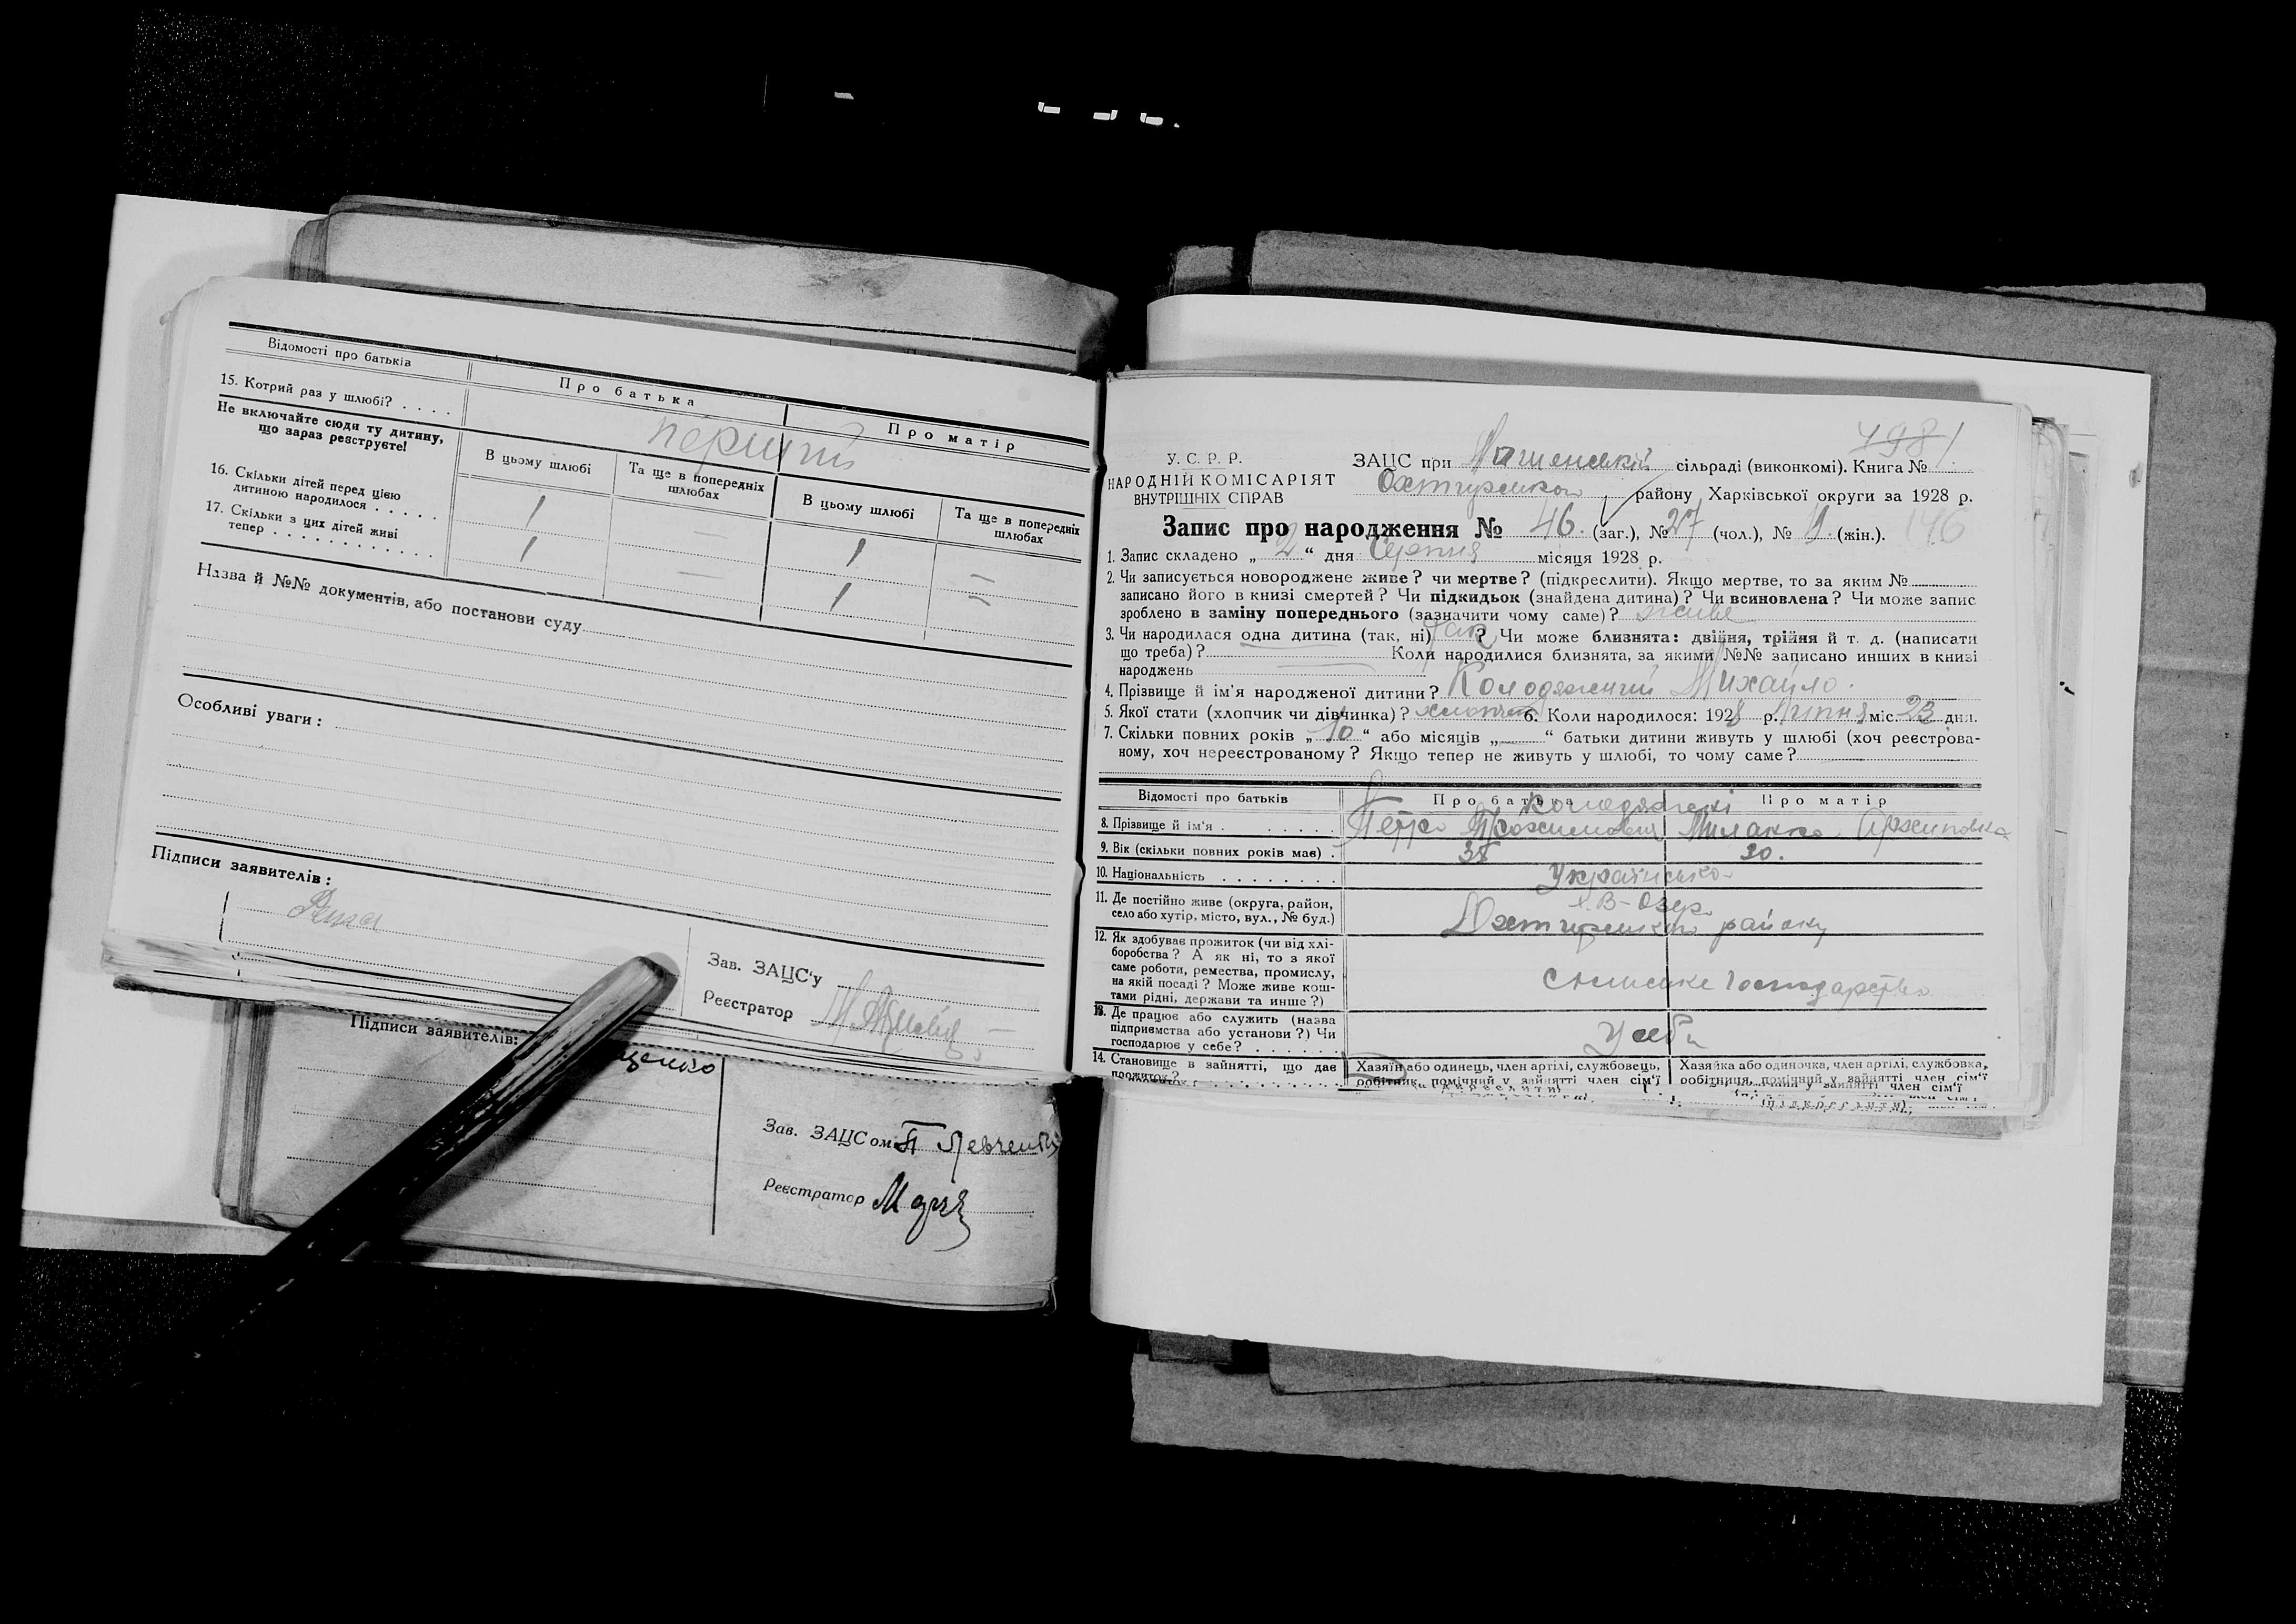 Відомості про батьків
Про батька
Про матір
15. Котрий раз у шлюбі? . . . .
перший
Не включайте сюди ту дитину,
що зараз реєструєте!
В цьому шлюбі
Та ще в попередніх
шлюбах
В цьому шлюбі
Та ще в попередніх
шлюбах
16. Скільки дітей перед цією
дитиною народилося . . . . .
1 — 1 —
17. Скільки з цих дітей живі
тепер . . . . . . . . . . . .
1 — 1 —
Назва й №№ документів, або постанови суду
Особливі уваги:
Підписи заявителів:
Зав. ЗАЦС'у
Реєстратор
Підписи заявителів:
Зав. ЗАЦСом
Реєстратор
У. С. Р. Р.
НАРОДНІЙ КОМІСАРІЯТ
ВНУТРІШНІХ СПРАВ
4981
ЗАЦС при сільраді (виконкомі). Книга №
Охтирського району Харківської округи за 1928 р.
Запис про народження № 46. (заг.), № 27 (чол.), № (жін.). 146
1. Запис складено „2“ дня Серпня місяця 1928 р.
2. Чи записується новороджене живе? чи мертве? (підкреслити). Якщо мертве, то за яким №
записано його в книзі смертей? Чи підкидьок (знайдена дитина)? Чи всиновлена? Чи може запис
зроблено в заміну попереднього (зазначити чому саме)? живе
3. Чи народилася одна дитина (так, ні) так? Чи може близнята: двійня, трійня й т. д. (написати
що треба)? Коли народилися близнята, за якими №№ записано инших в книзі
народжень
4. Прізвище й ім'я народженої дитини? Колодяжний Михайло.
5. Якої стати (хлопчик чи дівчинка)? хлопчик 6. Коли народилося: 1928 р. Липня міс. 23 дня.
7. Скільки повних років „10“ або місяців „ “ батьки дитини живуть у шлюбі (хоч реєстрова-
ному, хоч нереєстрованому? Якщо тепер не живуть у шлюбі, то чому саме?
Відомості про батьків
Про батька
Про матір
Колодяжні
8. Прізвище й ім'я . . . . . . .
Петро
Архиповна
9. Вік (скільки повних років має) .
38
30.
10. Національність . . . . . . . .
Українсько
11. Де постійно живе (округа, район,
село або хутір, місто, вул., № буд.)
х. В-Озер.
Охтирського району
12. Як здобуває прожиток (чи від хлі-
боробства? А як ні, то з якої
саме роботи, ремества, промислу,
на якій посаді? Може живе кош-
тами рідні, держави та инше?)
сільське господарство
13. Де працює або служить (назва
підприємства або установи?) Чи
господарює у себе? . . . . . .
У себе
14. Становище в зайнятті, що дає
прожиток? . . . . . . . . . .
Хазяїн або одинець, член артілі, службовець,
робітник, помічний у зайнятті член сім'ї
Хазяйка або одиночка, член артілі, службовка,
робітниця, помічний у зайнятті член сім'ї